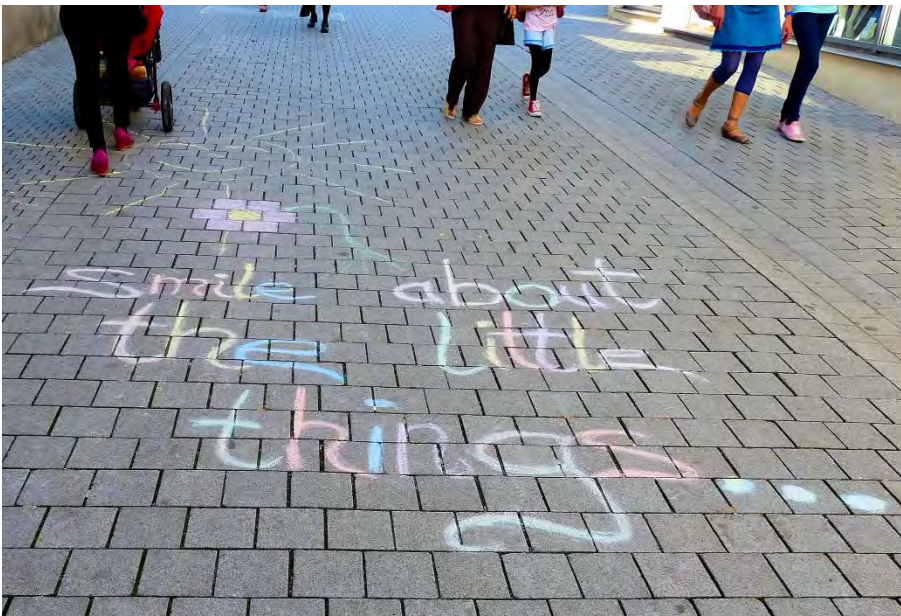 Smile about
the little
things...